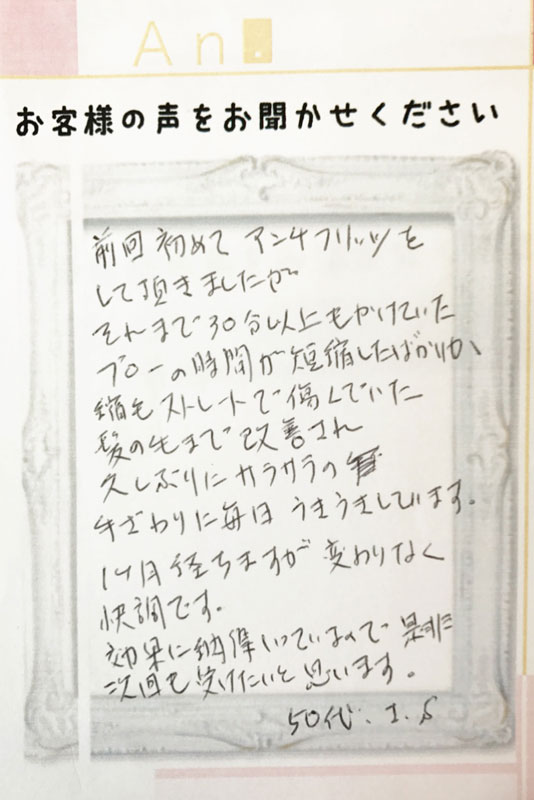 An.
お客様の声をお聞かせください
前回 初めて アンチフリッツを
して頂きましたが
それまで30分以上もかけていた
ブローの時間が短縮したばかりか、
縮毛ストレートで傷んでいた
髪の毛まで改善され
久しぶりにサラサラの
手ざわりに毎日 うきうきしています。
1ヶ月経ちますが 変わりなく
快調です。
効果に納得いっているので 是非
次回も受けたいと思います。
50代. I.S